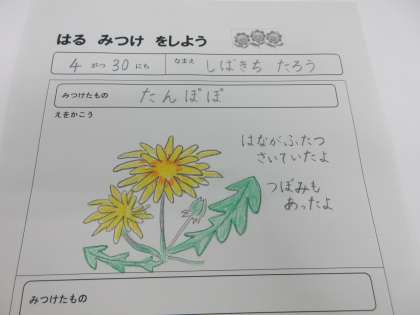 はる みつけ をしよう
4 がつ 30 にち なまえ しばきち たろう
みつけたもの たんぽぽ
えをかこう
はながふたつ
さいていたよ
つぼみも
あったよ
みつけたもの